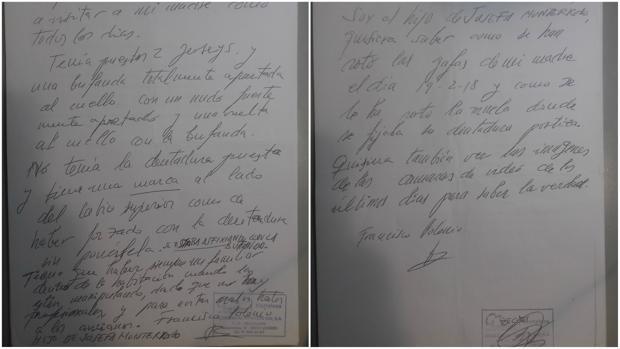 a visitar a mi madre como
todos los días.
Tenía puestos 2 jerseys y
una bufanda totalmente apretada
al cuello con un nudo fuerte
mente apretado y una vuelta
al cuello con la bufanda.
No tenía la dentadura puesta
y tiene una marca al lado
del labio superior como de
haber forzado con la dentadura
sin ponérsela.
Tiene que haber siempre un familiar
dentro de la habitación cuando los
estén manipulando, dado que no hay
profesionales y para evitar malos tratos
a los ancianos. Francisco Polonio
HIJO DE JOSEFA MONTERROSO
Soy el hijo de JOSEFA MONTERROSO,
quisiera saber como se han
roto las gafas de mi madre
el dia 19-2-18 y como se
le ha roto la muela donde
se fijaba su dentadura postiza.
Quisiera también ver las imágenes
de las camaras de video de los
últimos dias para saber la verdad.
Francisco Polonio